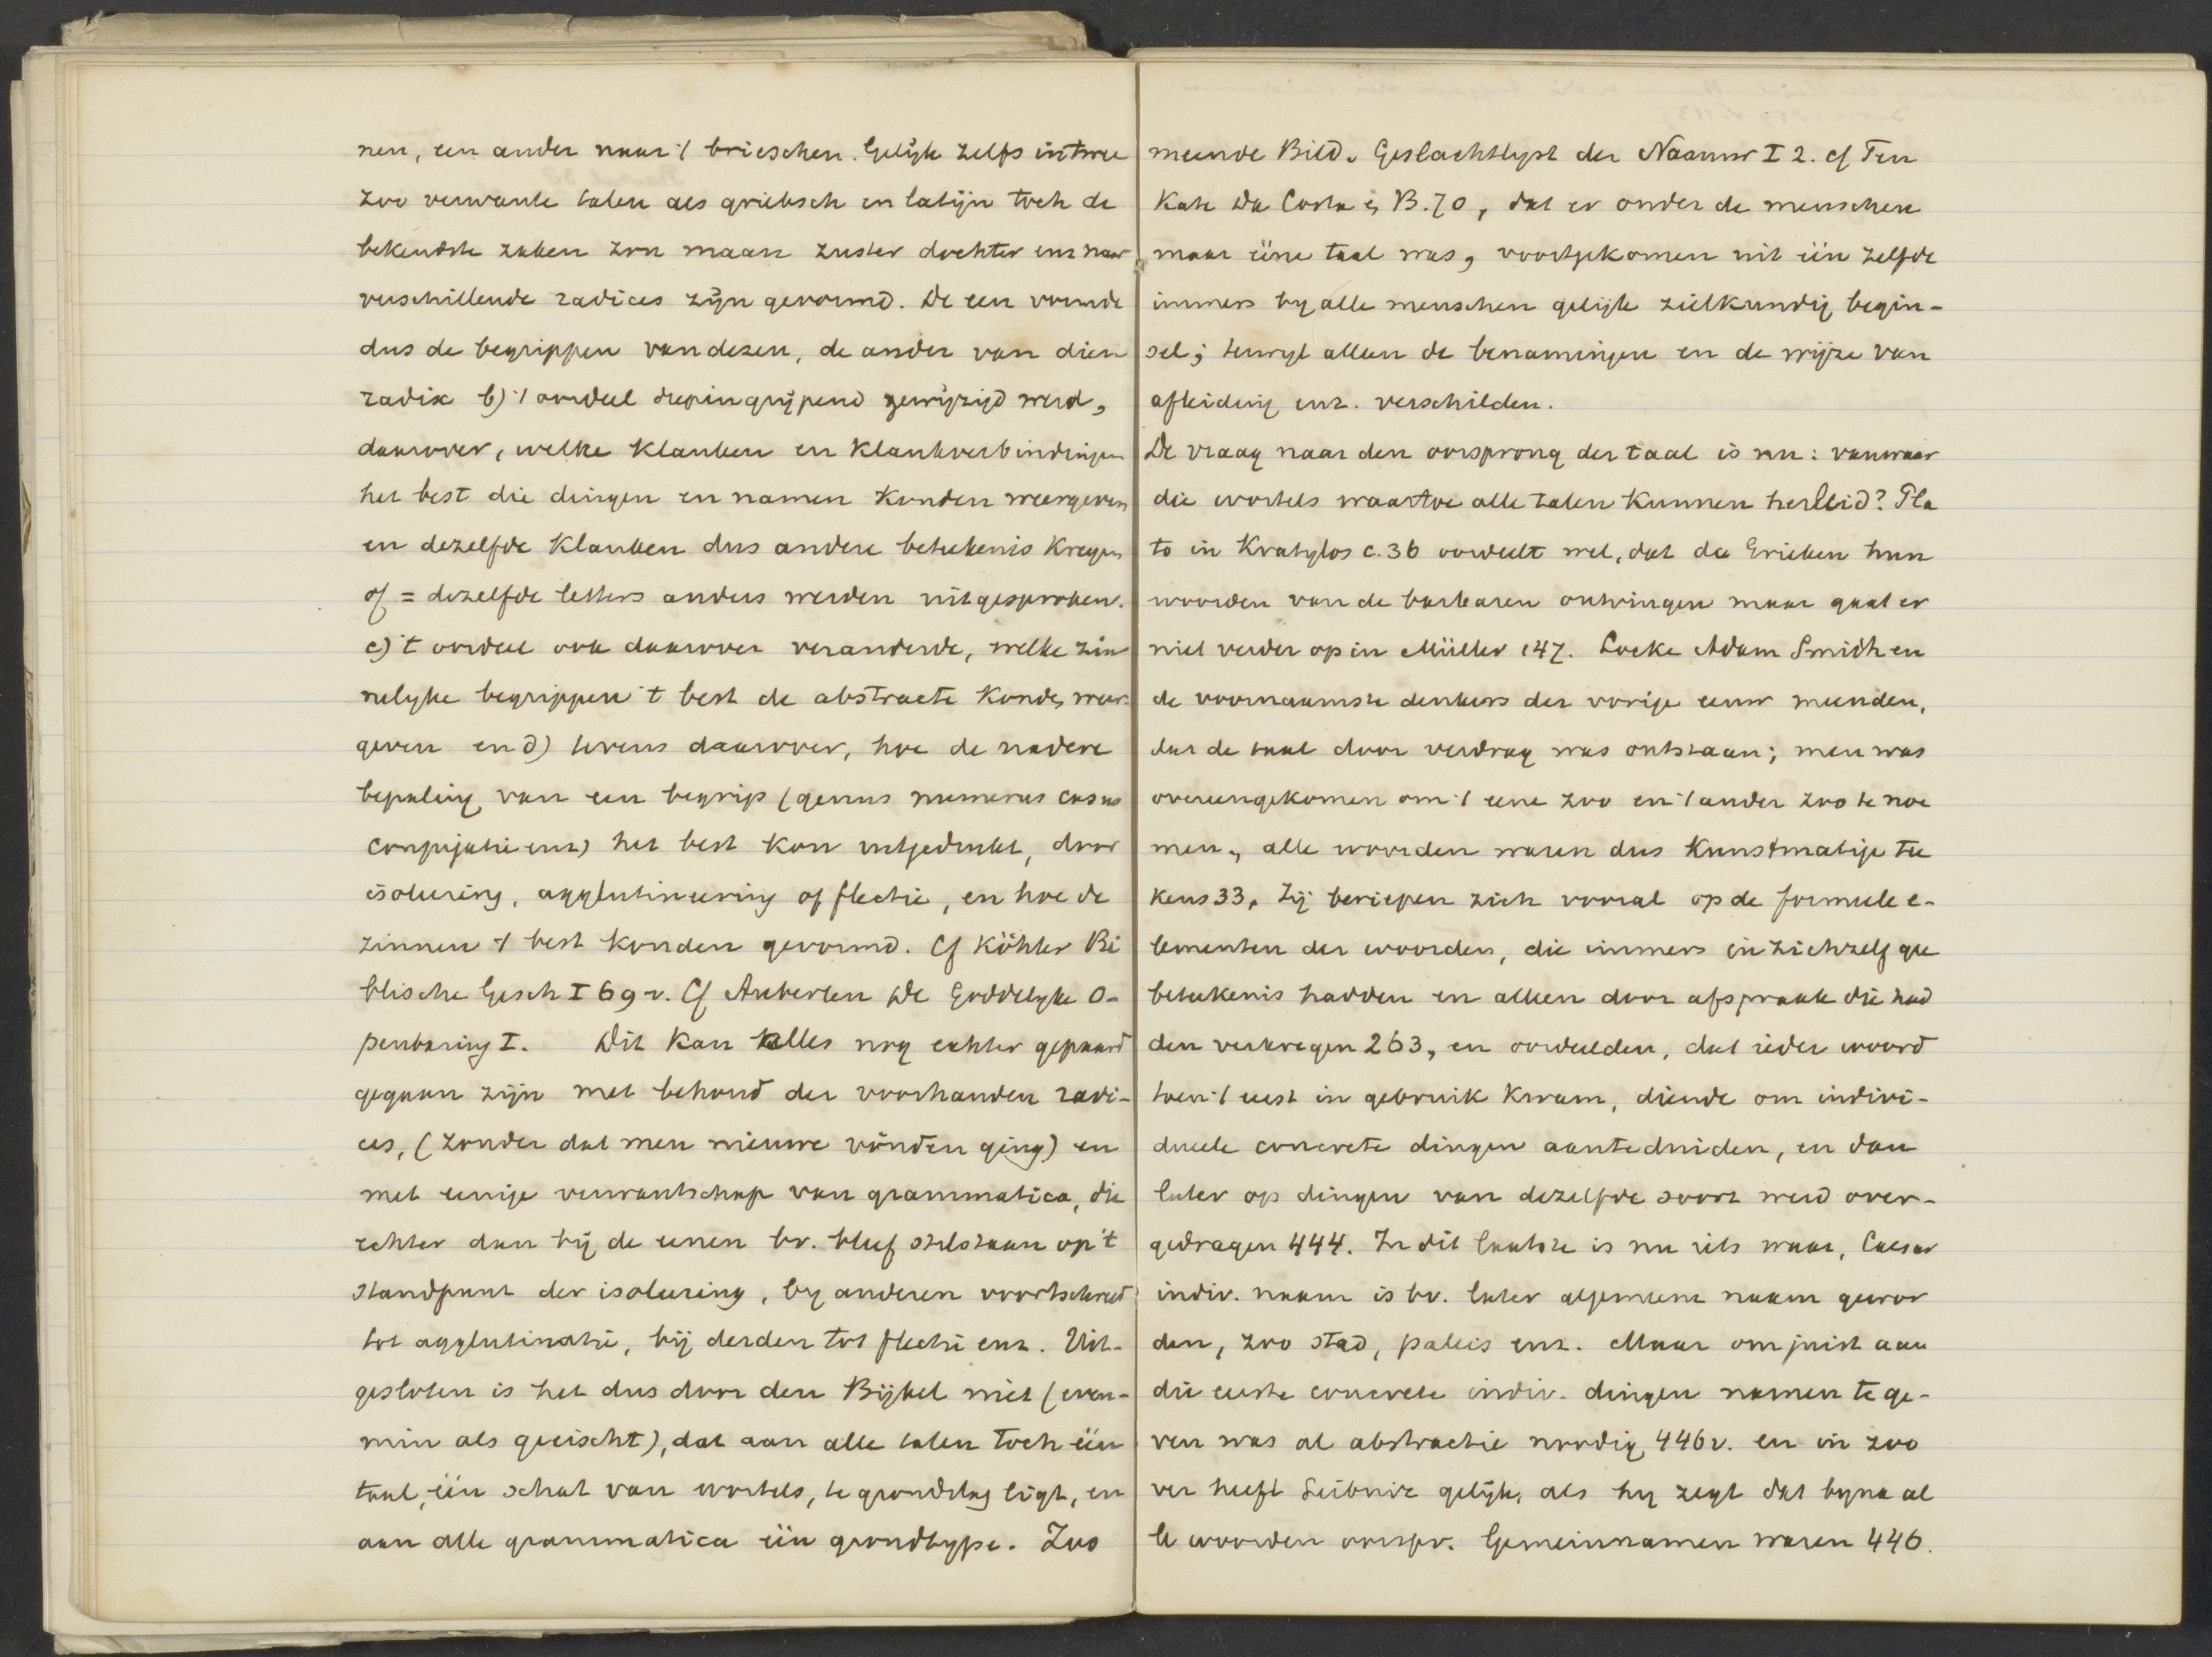 nen, een ander naar 't brieschen. Gelijk zelfs in twee
zoo verwante talen als grieksch en latijn toch de
bekendste zaken zon maan zuster dochter enz naar
verschillende radices zijn gevormd. De een vormde
dus de begrippen van dezen, de ander van dien
radix b) 't oordeel diepingrijpend gewijzigd werd,
daarover, welke klanken en klankverbindingen
het best die dingen en namen konden weergeven
en dezelfde klanken dus andere beteekenis kregen
of = dezelfde letters anders werden uitgesproken.
c) 't oordeel ook daarover veranderde, welke zin
nelyke begrippen 't best de abstracte konden weer-
geven en d) tevens daarover, hoe de nadere
bepaling van een begrip (genus numerus casus
conjugatie enz) het best kon uitgedrukt, door
isoleering, agglutineering of flectie, en hoe de
zinnen 't best konden gevormd. Cf Köhler Bi
blische Gesch I 69 v. Cf Auberlen De Goddelyke O-
penbaring I. Dit kan alles nog echter gepaard
gegaan zijn met behoud der voorhanden radi-
ces, (zonder dat men nieuwe vinden ging) en
met eenige verwantschap van grammatica, die
echter dan bij de eenen bv. bleef stilstaan op 't
standpunt der isoleering, by anderen voortschreed
tot agglutinatie, bij derden tot flectie enz. Uit-
gesloten is het dus door den Bijbel niet (even-
min als geëischt), dat aan alle talen toch één
taal, één schat van wortels, te grondslag ligt, en
aan alle grammatica één grondtype. Zoo
meende Bild. Geslachtlyst der Naamw I 2. cf Ten
Kate Da Costa B. 70, dat er onder de menschen
maar ééne taal was, voortgekomen uit één zelfde
immers by alle menschen gelijk zielkundig begin-
sel; terwyl alleen de benamingen en de wijze van
afleiding enz. verschilden.
De vraag naar den oorsprong der taal is nu: vanwaar
die wortels waartoe alle talen kunnen herleid? Pla
to in Kratylos c. 36 oordeelt wel, dat de Grieken hun
woorden van de barbaren ontvingen maar gaat er
niet verder op in Müller 147. Locke Adam Smith en
de voornaamste denkers der vorige eeuw meenden,
dat de taal door verdrag was ontstaan; men was
overeengekomen om 't eene zoo en 't ander zoo te noe
men, alle woorden waren dus kunstmatige tee
kens 33. Zij beriepen zich vooral op de formeele e-
lementen der woorden, die immers in zichzelf gee
beteekenis hadden en alleen door afspraak die had
den verkregen 263, en oordeelden, dat ieder woord
toen 't eerst in gebruik kwam, diende om indivi-
dueele concrete dingen aanteduiden, en dan
later op dingen van dezelfde soort werd over-
gedragen 444. In dit laatste is nu iets waar, Caesar
indiv. naam is bv. later algemeene naam gewor
den, zoo stad, paleis enz. Maar om juist aan
die eerste concrete indiv. dingen namen te ge-
ven was al abstractie noodig 446 v. en in zoo
ver heeft Leibniz gelijk, als hy zegt dat byna al
le woorden oorspr. Gemeinnamen waren 446.